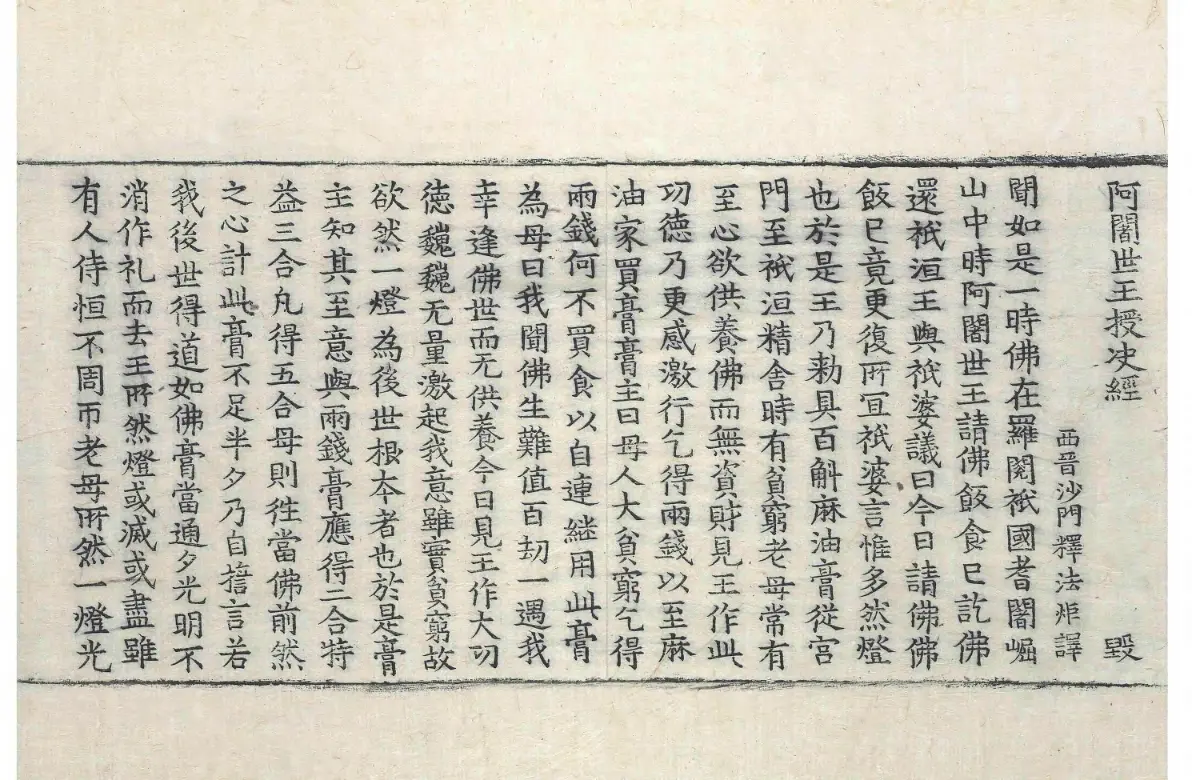 阿闍世王授决經 毀
西晉沙門釋法炬譯
聞如是一時佛在羅閱祇國耆闍崛
山中時阿闍世王請佛飯食已訖佛
還祇洹王與祇婆議曰今日請佛佛
飯已竟更復所冝祇婆言惟多然燈
也於是王乃勑具百斛麻油膏從宮
門至祇洹精舍時有貧窮老母常有
至心欲供養佛而無資財見王作此
功德乃更感激行乞得兩錢以至麻
油家買膏膏主曰母人大貧窮乞得
兩錢何不買食以自連継用此膏
為母曰我聞佛生難值百劫一遇我
幸逢佛世而无供養今日見王作大功
德巍巍无量激起我意雖實貧窮故
欲然一燈為後世根夲者也於是膏
主知其至意與兩錢膏應得二合特
益三合凡得五合母則徃當佛前然
之心計此膏不足半夕乃自擔言若
我後世得道如佛膏當通夕光明不
消作礼而去王所然燈或滅或盡雖
有人侍恒不周帀老母所然一燈光